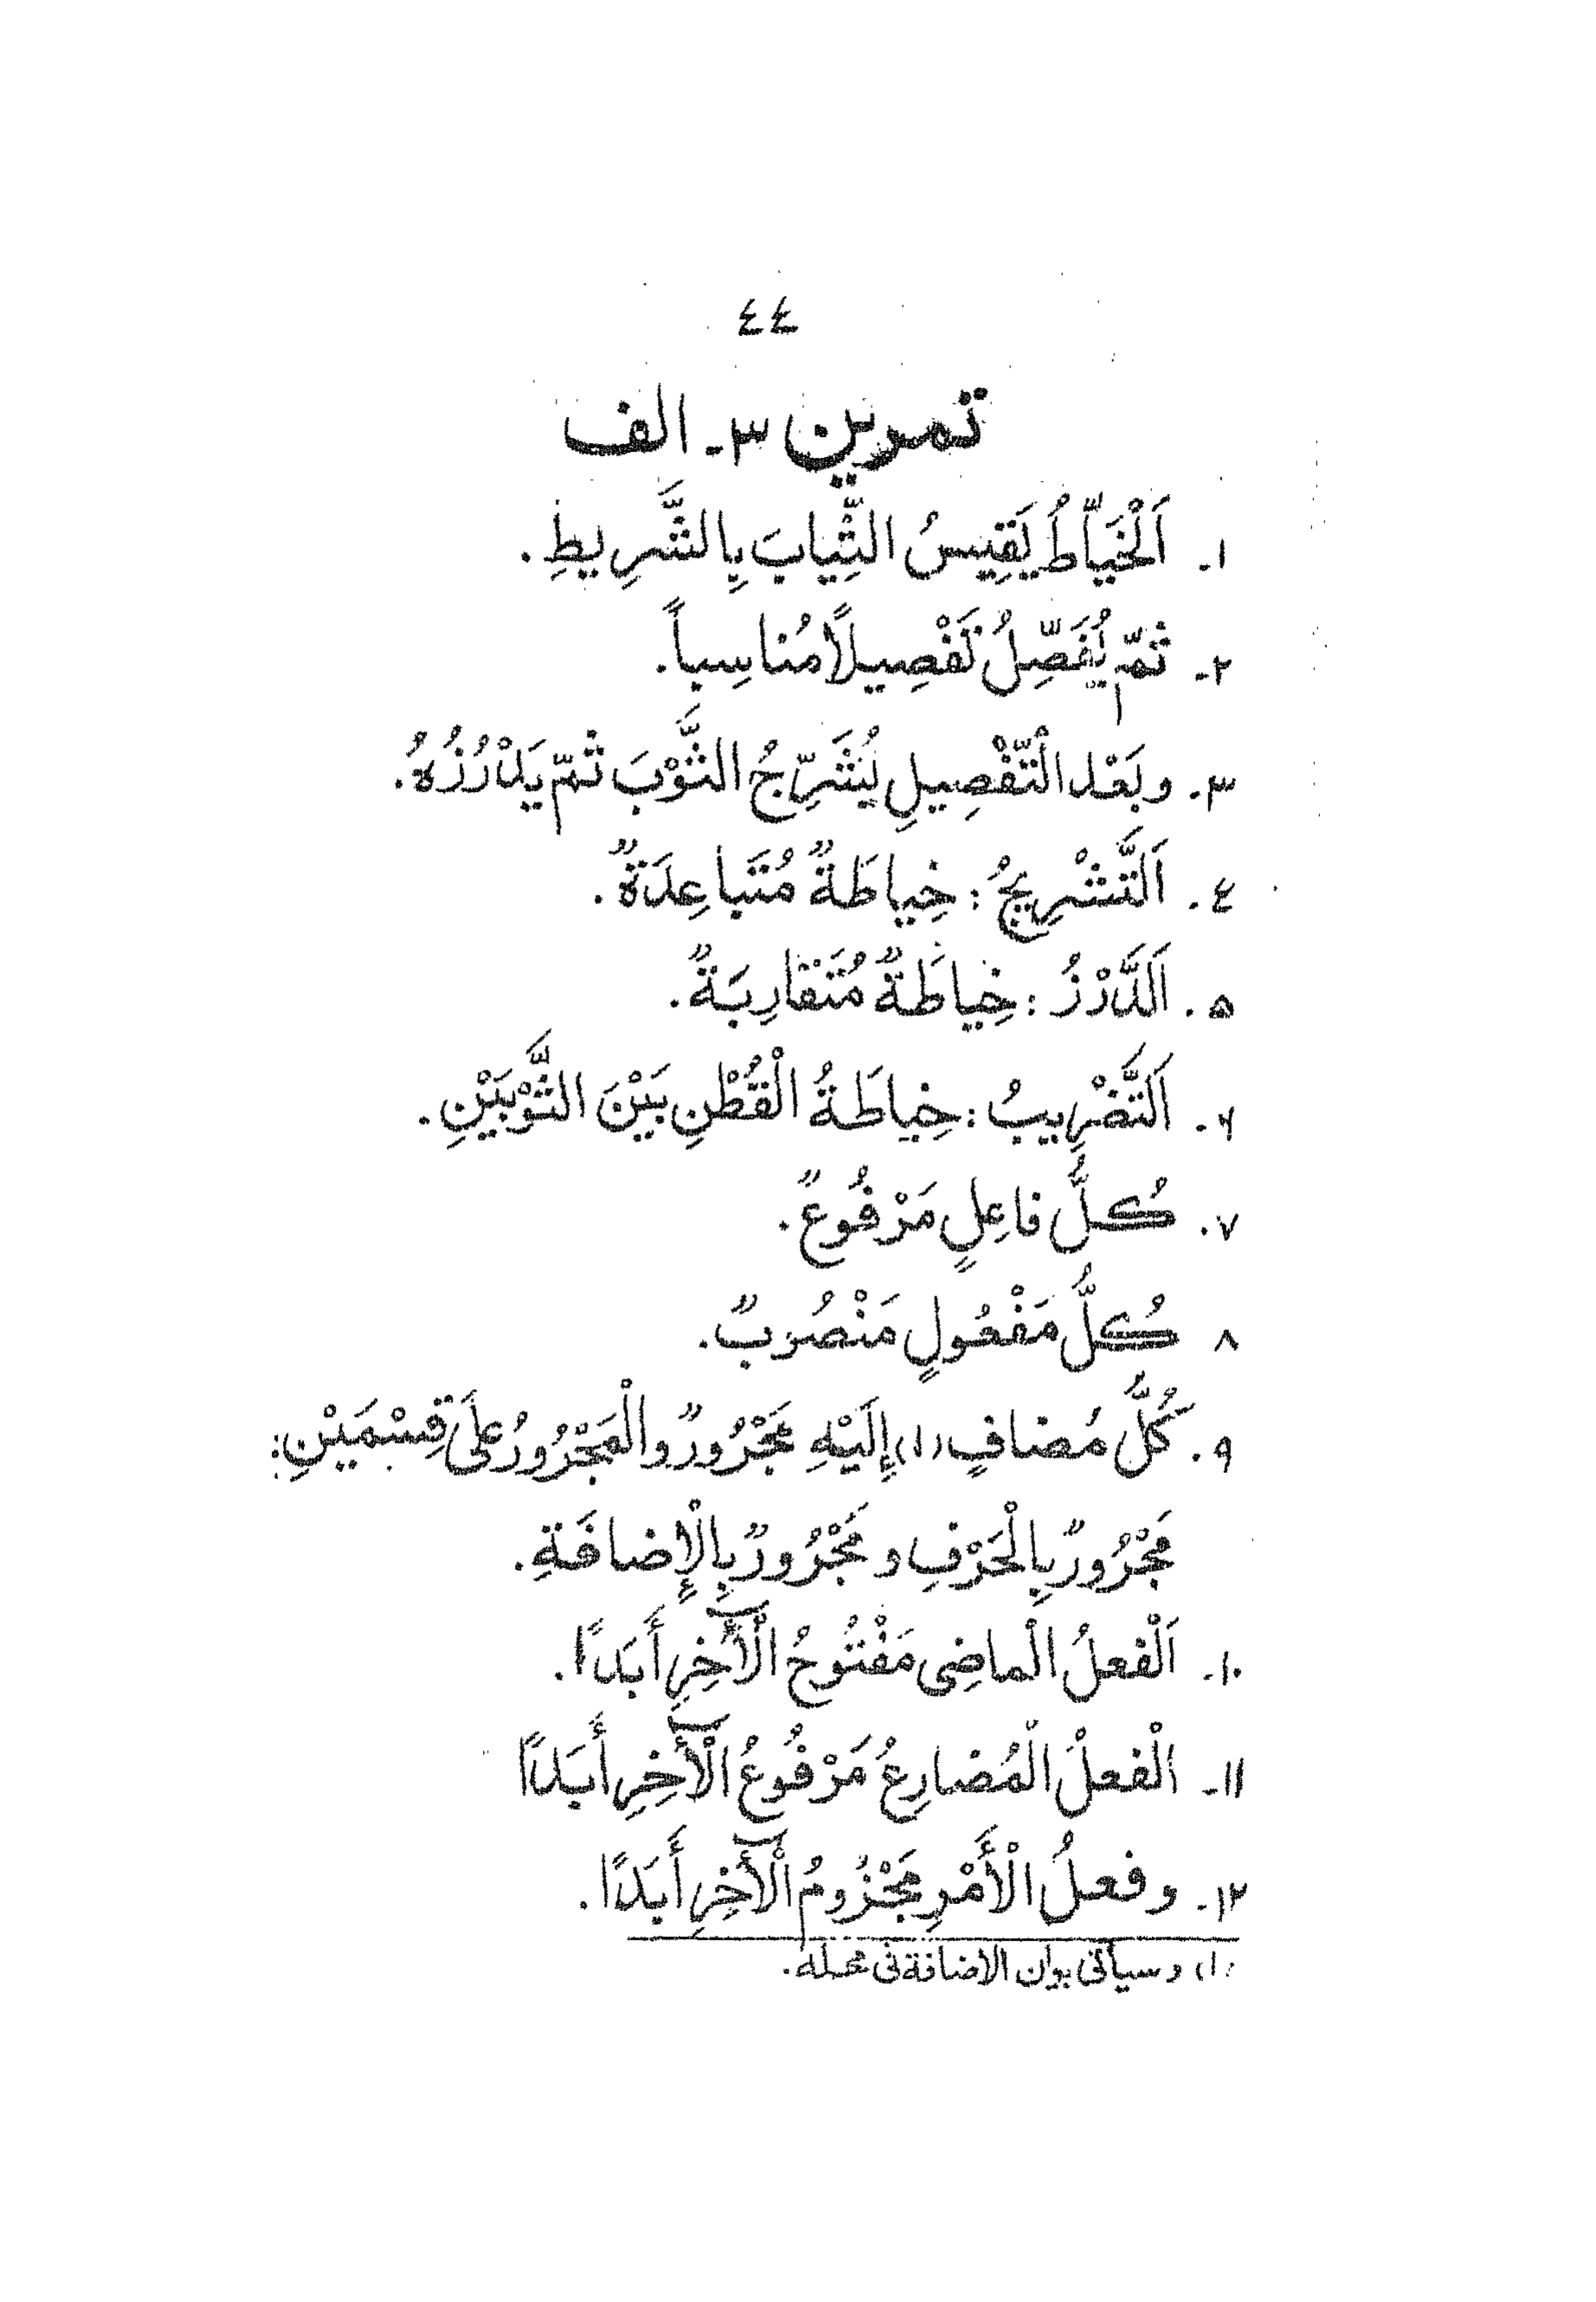 ٤٤
تمرين ٣ـ الف
١ـ اَلْخَيّاطُ يَقِيسُ الثِّيابَ بِالشَّرِيطِ.
٢ـ ثمّ يُفَصِّلُ تَفْصِيلاً مُناسِباً.
٣. وبَعْد الْتَّفْصِيلِ يُشَرِّجُ الثَّوْبَ ثمّ يَدْرُزُهُ.
٤. اَلتَّشْرِيجُ: خِياطَةٌ مُتَباعِدَةٌ.
۵. اَلدَّرْزُ: خِياطَةٌ مُتَقارِبَةٌ.
۶. اَلتَّضْرِيبُ: خِياطَةُ الْقُطْنِ بَيْنَ الثَّوْبَيْنِ.
٧. كُلُّ فاعِلٍ مَرْفُوعٌ.
٨ كُلُّ مَفْعُولٍ مَنْصُوبٌ.
٩. كُلُّ مُضافٍ (١) إِلَيْهِ مَجْرُورٌ والْمَجْرُورُ عَلىَ قِسْمَيْنِ:
مَجْرُورٌ بِالْحَرْفِ و مَجْرُورٌ بِالْإِضافَةِ.
١٠ـ اَلْفعلُ الْماضِى مَفْتُوحُ الْآخِرِ أَبَدًا.
١١ـ الْفعلُ الْمُضارِعُ مَرْفُوعُ الْآخِرِ أَبَدًا
١٢ـ وفعلُ الْأَمْرِ مَجْزُومُ الْآخِرِ أَبَدًا.
(١) وسيأتى بيان الاضافة فى محله.